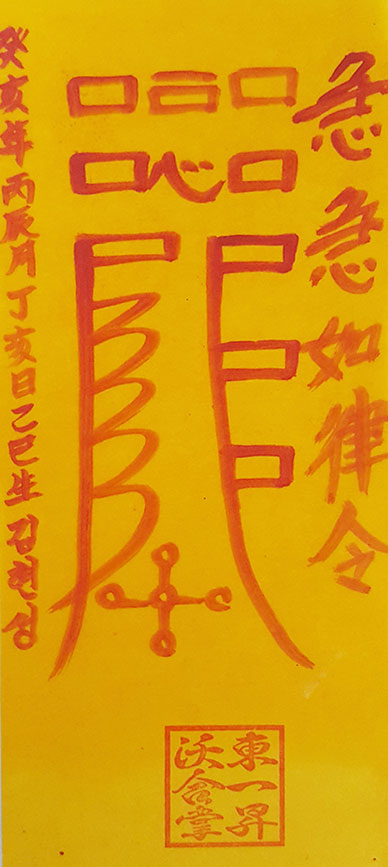 急急如律令
口口
口心口
癸亥年丙辰月丁亥日乙巳生김현성
東一昇
沃堂